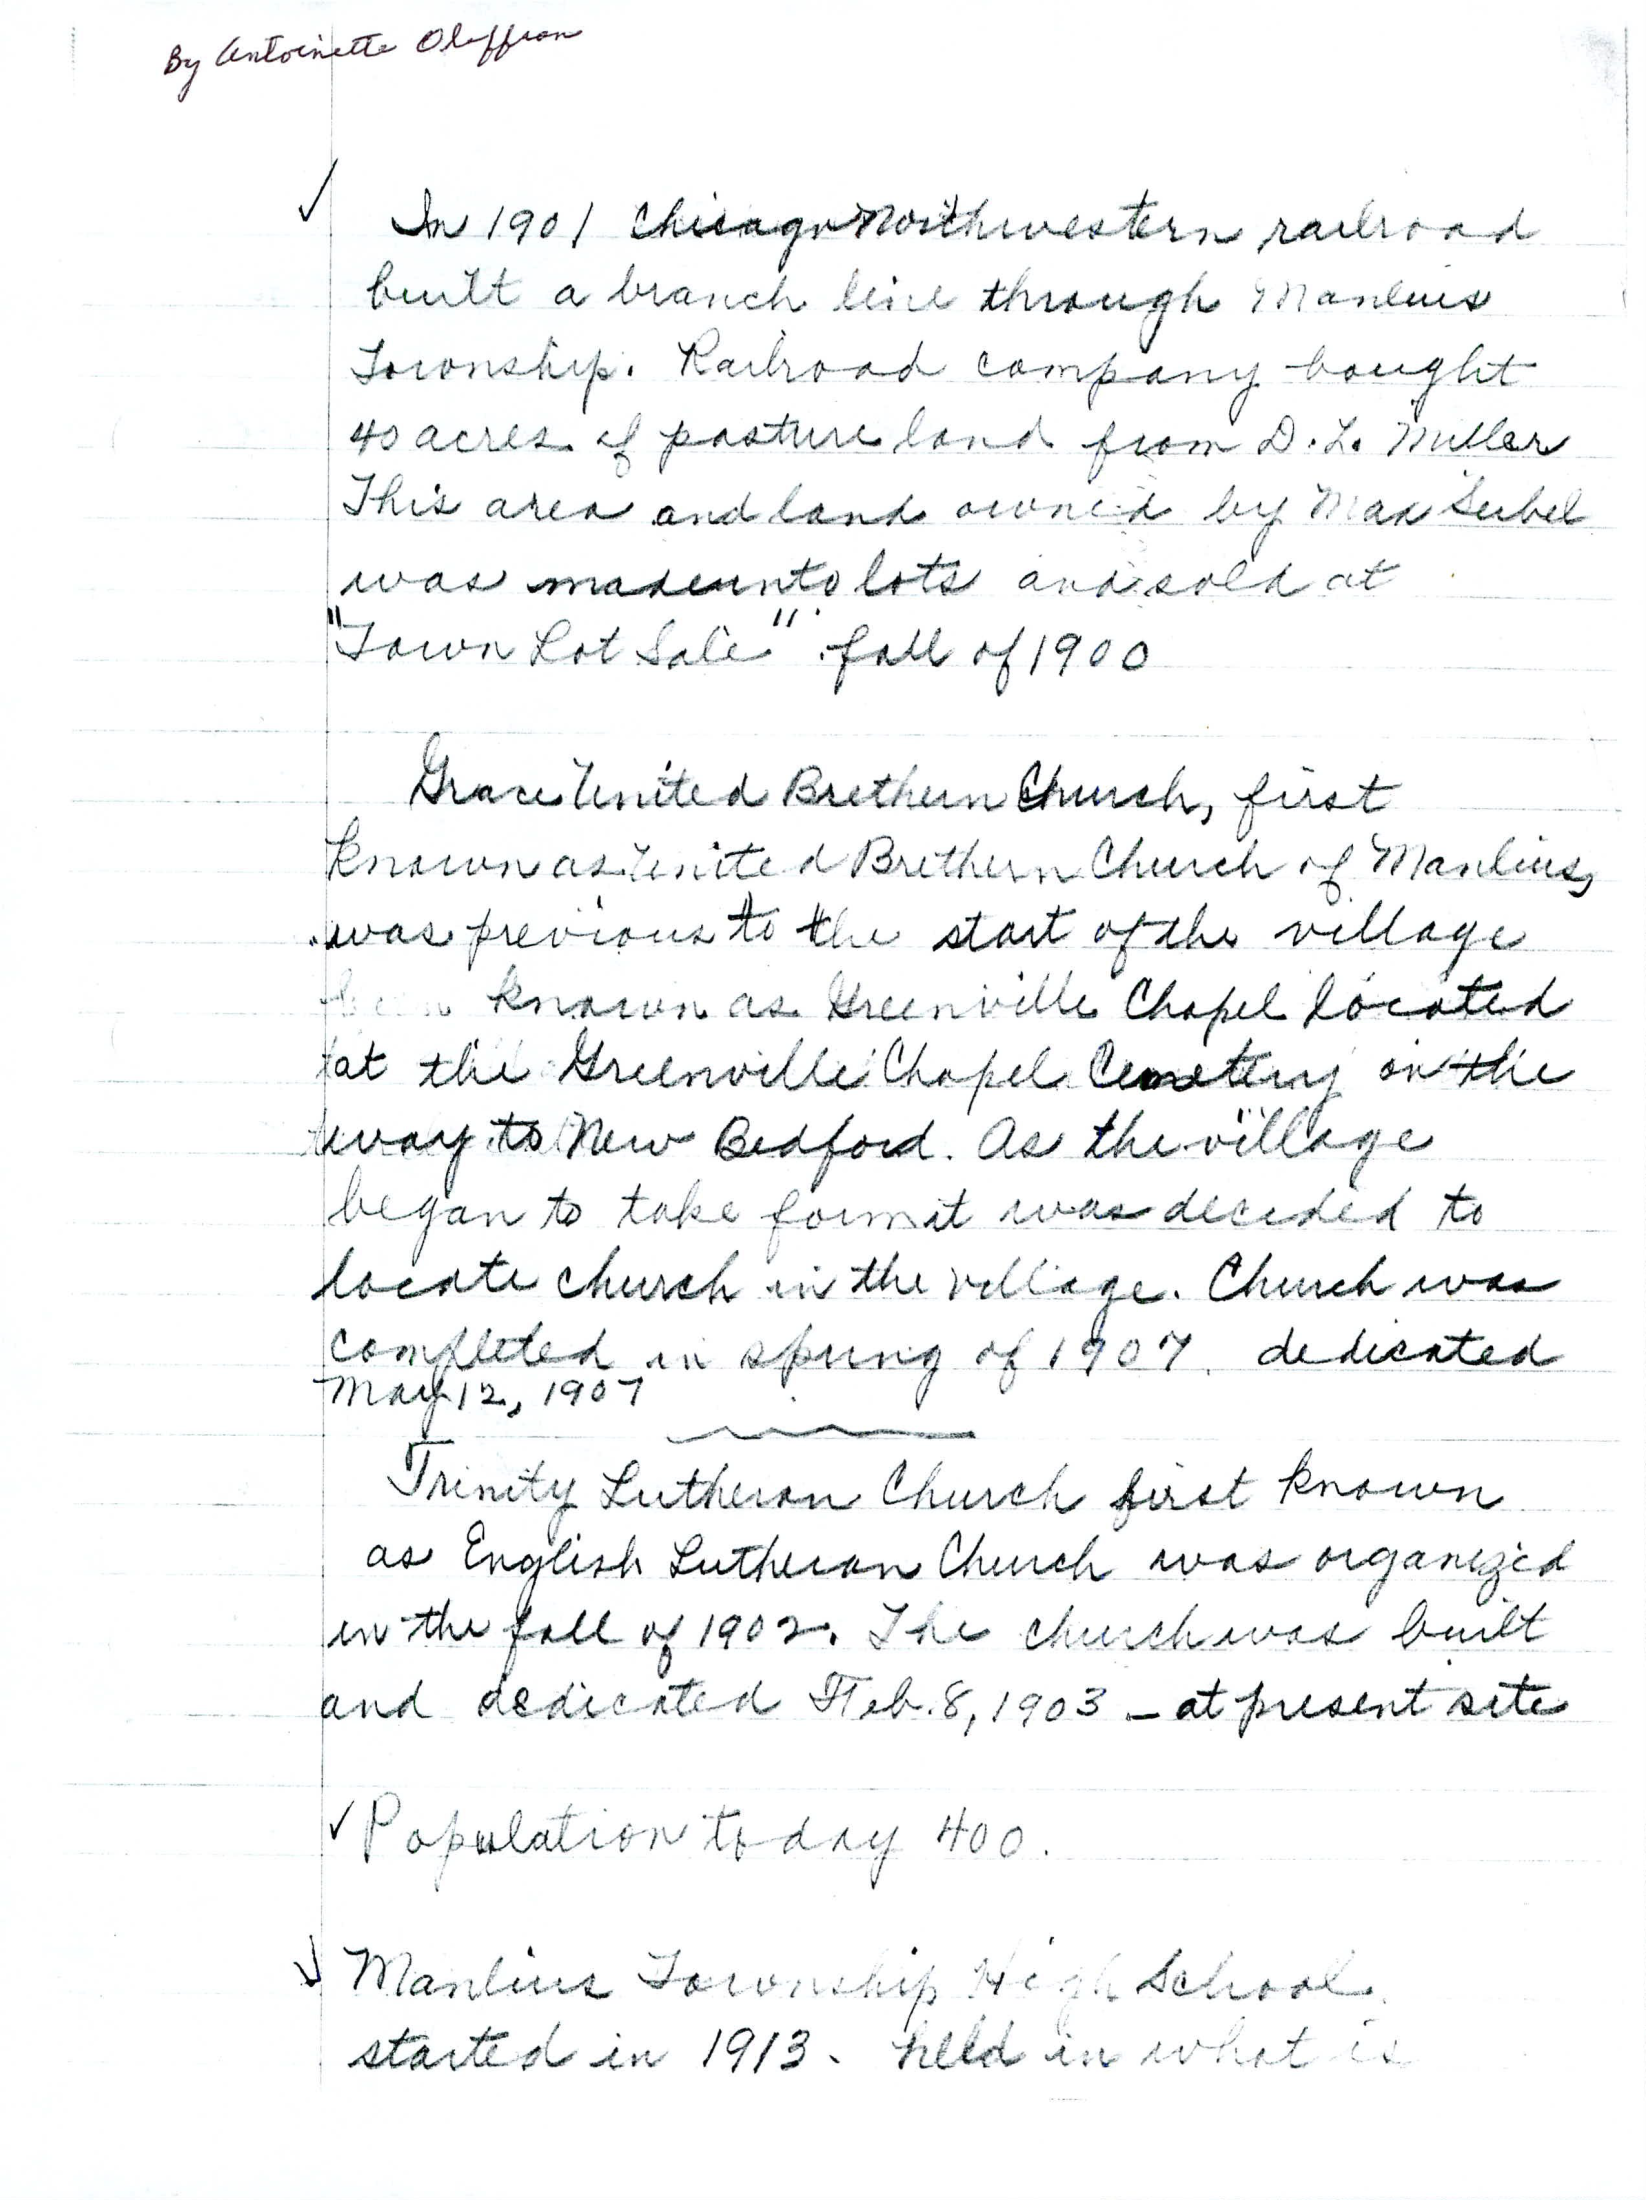 By Antoinette Oleffson
✓ In 1901 Chicago Northwestern railroad
built a branch line through Manlius
Township. Railroad company bought
40 acres of pasture land from D. L. Miller
This area and land owned by Max Seibel
was made into lots and sold at
"Town Lot Sale" fall of 1900
Grace United Brethern Church, first
known as United Brethern Church of Manlius,
was previous to the start of the village
been known as Greenville Chapel located
at the Greenville Chapel Cemetery on the
way to New Bedford. As the village
began to take form it was decided to
locate church in the village. Church was
completed in spring of 1907. dedicated
May 12, 1907
Trinity Lutheran Church first known
as English Lutheran Church was organized
in the fall of 1902. The church was built
and dedicated Feb. 8, 1903 - at present site
✓ Population today 400.
✓ Manlius Township High School
started in 1913. held in what is